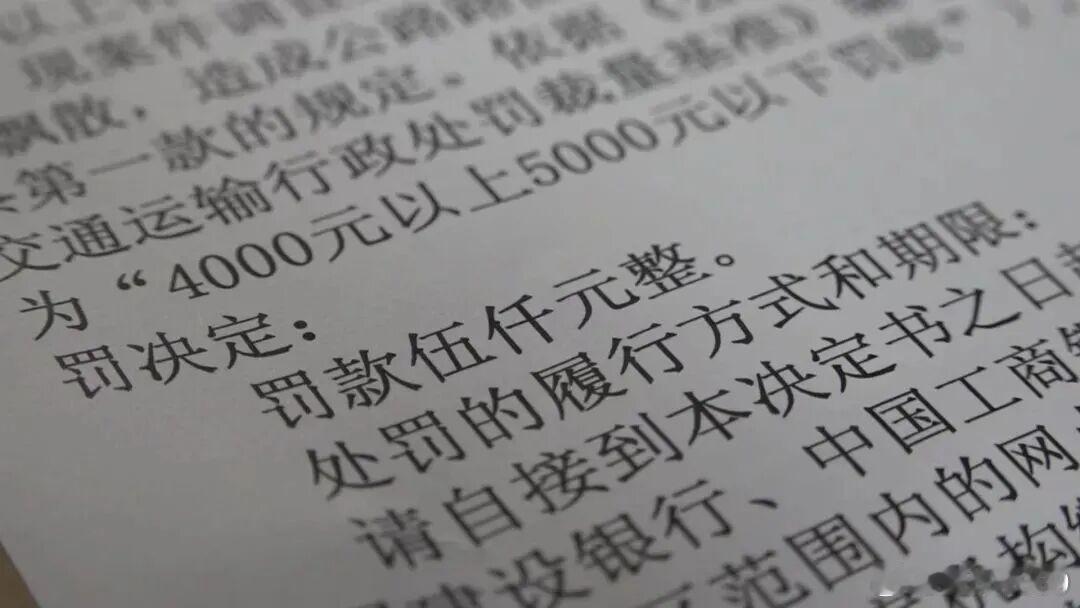 以上
现案件调查
飘散，造成公路路
第一款的规定。依据《
交通运输行政处罚裁量基准》
为“4000元以上5000元以下罚款”
罚决定：
罚款伍仟元整。
处罚的履行方式和期限：
请自接到本决定书之日起
建设银行、中国工商银
范围内的网
机构缴